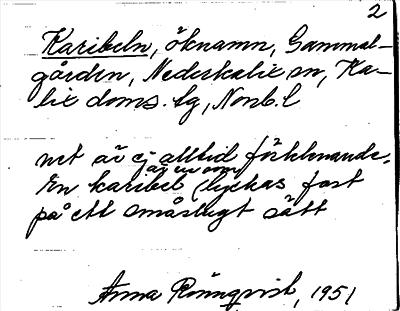 2
Karibeln, öknamn, Gammal-
gården, Nederkalix sn, Ka-
lix doms. lg, Nonb. l
net är ej alltid förklenande.
är en som
En karibel lyckas fast
på ett småslugt sätt
Anna Rönnqvist, 1951